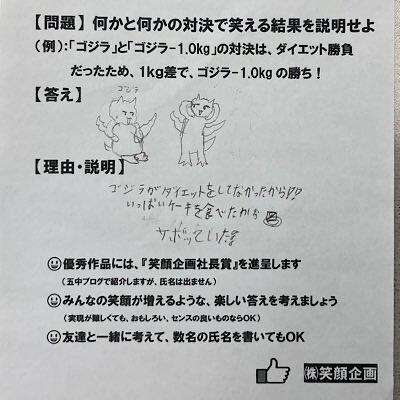 【問題】何かと何かの対決で笑える結果を説明せよ
(例):「ゴジラ」と「ゴジラ-1.0kg」の対決は、ダイエット勝負
だったため、1kg差で、ゴジラ-1.0kgの勝ち!
【答え】
ゴジラ
【理由・説明】
ゴジラがダイエットをしてなかったから!?
いっぱいケーキを食べたから
サボっていた
😊優秀作品には、『笑顔企画社長賞』を進呈します
(五中ブログで紹介しますが、氏名は出ません)
😊みんなの笑顔が増えるような、楽しい答えを考えましょう
(実現が難しくても、おもしろい、センスの良いものならOK)
😊友達と一緒に考えて、数名の氏名を書いてもOK
㈱笑顔企画